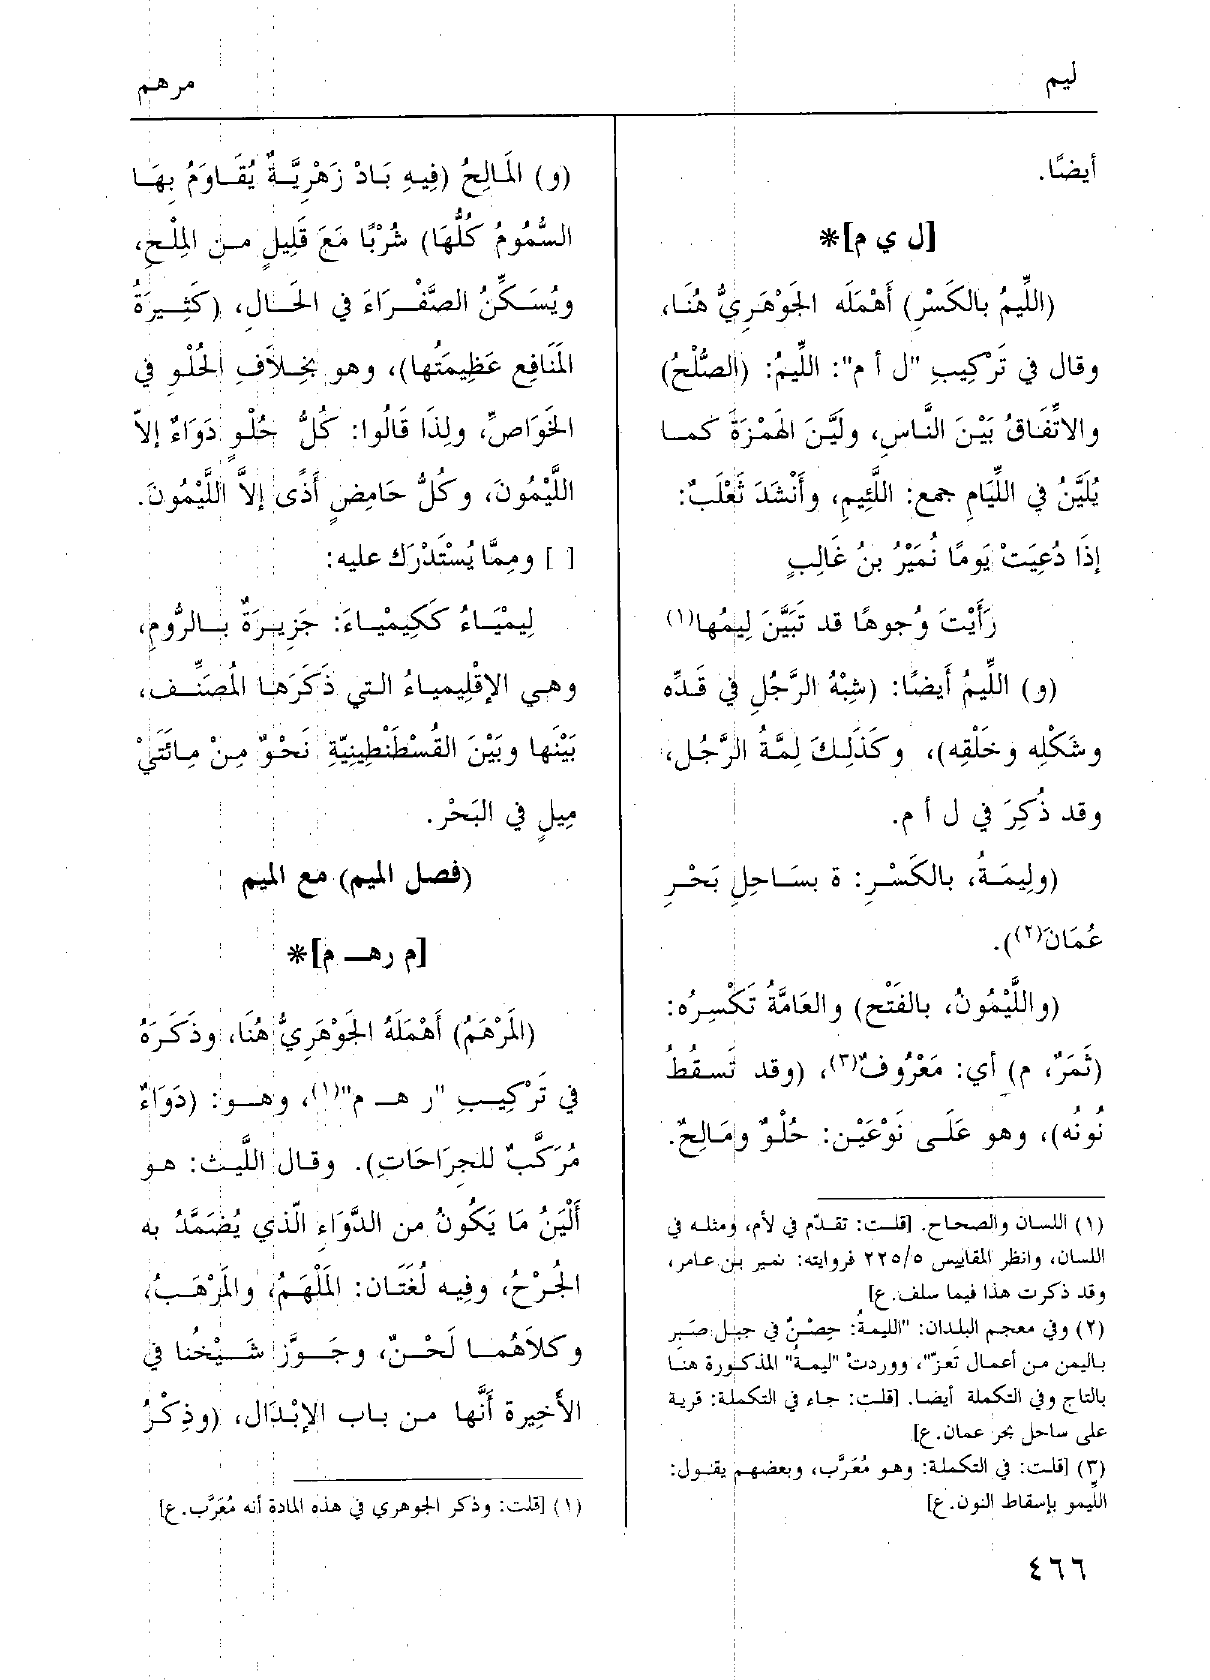 ليم
مرهم
أيضًا.
[ل ي م]*
(اللِّيمُ بالكَسْرِ) أَهْمَلَه الجَوْهَرِيُّ هُنَا،
وقال في تَرْكِيبِ "ل أ م": اللِّيمُ: (الصُّلْحُ)
والاتِّفَاقُ بَيْنَ النَّاسِ، ولَيَّنَ الهَمْزَةَ كما
يُلَيَّنُ في اللِّيَامِ جمع: اللَّئِيمِ، وأَنْشَدَ ثَعْلَبٌ:
إذَا دُعِيَتْ يَومًا نُمَيْرُ بنُ غَالِبٍ
رَأَيْتَ وُجوهًا قد تَبَيَّنَ لِيمُها(١)
(و) اللِّيمُ أَيضًا: (شِبْهُ الرَّجُلِ في قَدِّه
وشَكْلِه وخَلْقِه)، وكَذَلِكَ لِمَةُ الرَّجُلِ،
وقد ذُكِرَ في ل أ م.
(ولِيمَةُ، بالكَسْرِ: ة بسَاحِلِ بَحْرِ
عُمَانَ(٢)).
(واللَّيْمُونُ، بالفَتْحِ) والعَامَّةُ تَكْسِرُه:
(ثَمَرٌ، م) أي: مَعْرُوفٌ(٣)، (وقد تَسقُطُ
نُونُه)، وهو عَلَى نَوْعَيْن: حُلْوٌ ومَالِحٌ.
(١) اللسان والصحاح. [قلت: تقدّم في لأم، ومثله في
اللسان، وانظر المقاييس ٢٢٥/٥ فروايته: نمير بن عامر،
وقد ذكرت هذا فيما سلف. ع]
(٢) وفي معجم البلدان: "الليمةُ: حِصْنٌ في جبل صَبِر
باليمن من أعمال تَعزّ"، ووردتْ "ليمة" المذكورة هنا
بالتاج وفي التكملة أيضا. [قلت: جاء في التكملة: قرية
على ساحل بحر عمان. ع]
(٣) [قلت: في التكملة: وهو مُعَرَّب، وبعضهم يقول:
اللِّيمو بإسقاط النون. ع]
(و) المَالِحُ (فِيهِ بَادْ زَهْرِيَّةٌ يُقَاوَمُ بِهَا
السُّمُومُ كُلُّهَا) شُرْبًا مَعَ قَلِيلٍ من المِلْحِ،
ويُسَكِّنُ الصَّفْرَاءَ في الحَال، (كَثِيرَةُ
المَنَافِعِ عَظِيمَتُها)، وهو بخِلاَفِ الحُلْو في
الخَوَاصِّ، ولِذَا قَالُوا: كُلُّ حُلْوٍ دَوَاءٌ إلاّ
اللَّيْمُونَ، وكُلُّ حَامِضٍ أَذًى إلاَّ اللَّيْمُونَ.
[ ] ومِمَّا يُسْتَدْرَك عليه:
لِيمْيَاءُ كَكِيمْيَاءَ: جَزِيرَةٌ بالرُّومِ،
وهي الإقْلِيمياءُ التي ذَكَرَها المُصَنِّف،
بَيْنَها وبَيْنَ القُسْطَنْطِينِيّةِ نَحْوٌ مِنْ مِائَتَيْ
مِيلٍ في البَحْر.
(فصل الميم) مع الميم
[م رهـ م]*
(المَرْهَمُ) أَهْمَلَهُ الجَوْهَرِيُّ هُنَا، وذَكَرَهُ
في تَرْكِيبِ "ر هـ م"(١)، وهو: (دَوَاءٌ
مُرَكَّبٌ للجِرَاحَاتِ). وقال اللَّيث: هو
أَلْيَنُ مَا يَكُونُ من الدَّوَاءِ الّذي يُضَمَّدُ به
الجُرْحُ، وفِيه لُغَتَان: المَلْهَمُ، والمَرْهَبُ،
وكلاَهُما لَحْنٌ، وجَوَّزَ شَيْخُنا في
الأَخِيرة أنَّها من باب الإبْدَال، (وذِكْرُ
(١) [قلت: وذكر الجوهري في هذه المادة أنه مُعَرَّب. ع]
٤٦٦